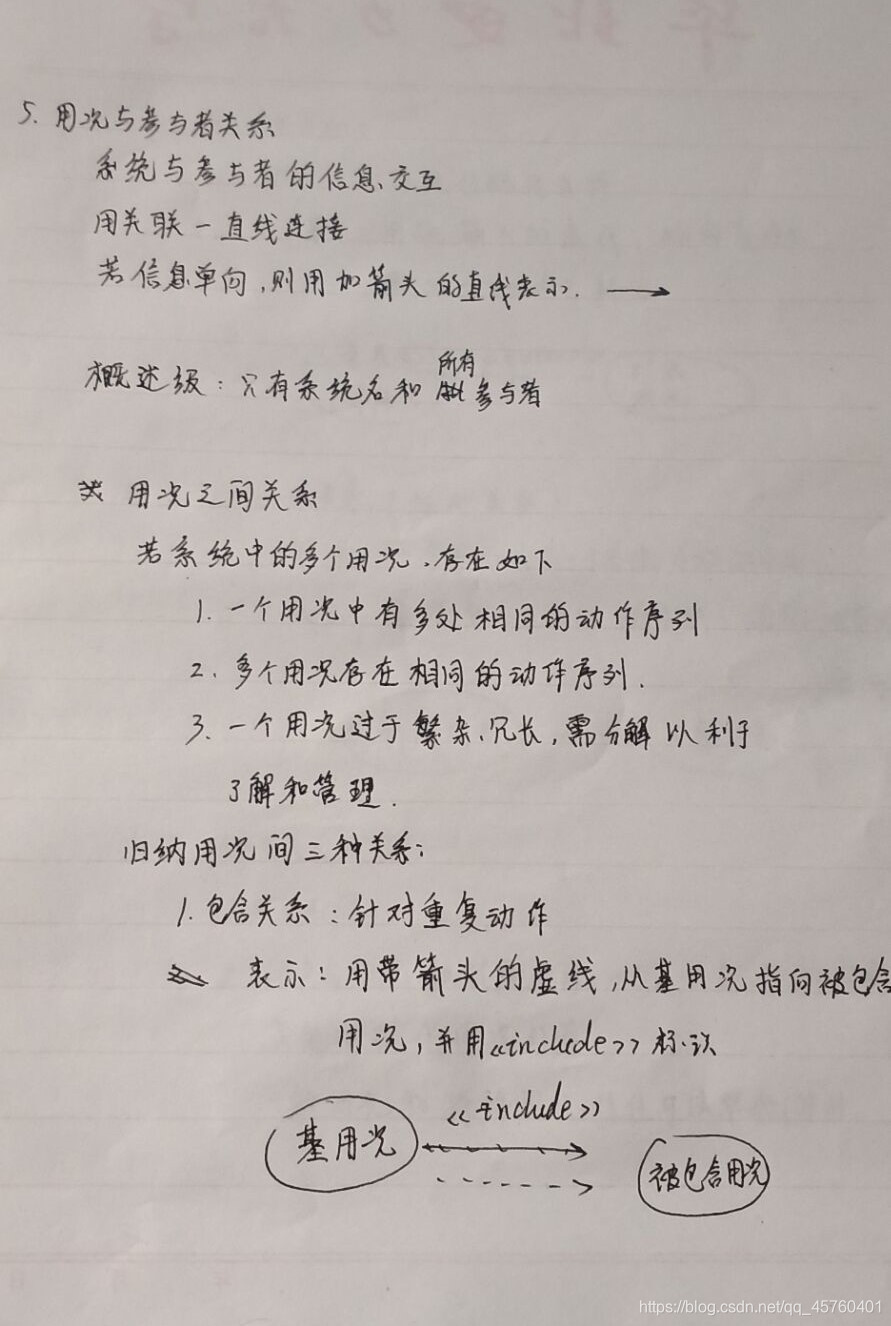 5. 用况与参与者关系
系统与参与者的信息交互
用关联一直线连接
若信息单向,则用加箭头的直线表示.
所有
概述级:只有系统名和 参与者
用况之间关系
若系统中的多个用况、存在如下
1. 一个用况中有多处相同的动作序列
2. 多个用况存在相同的动作序列.
3. 一个用况过于繁杂、冗长,需分解以利于
了解和管理.
归纳用况间三种关系:
1.包含关系:针对重复动作
表示:用带箭头的虚线,从基用况指向被包含
用况,并用<<include>>标识
<<include>>
基用况
被包含用况
https://blog.csdn.net/qq_45760401